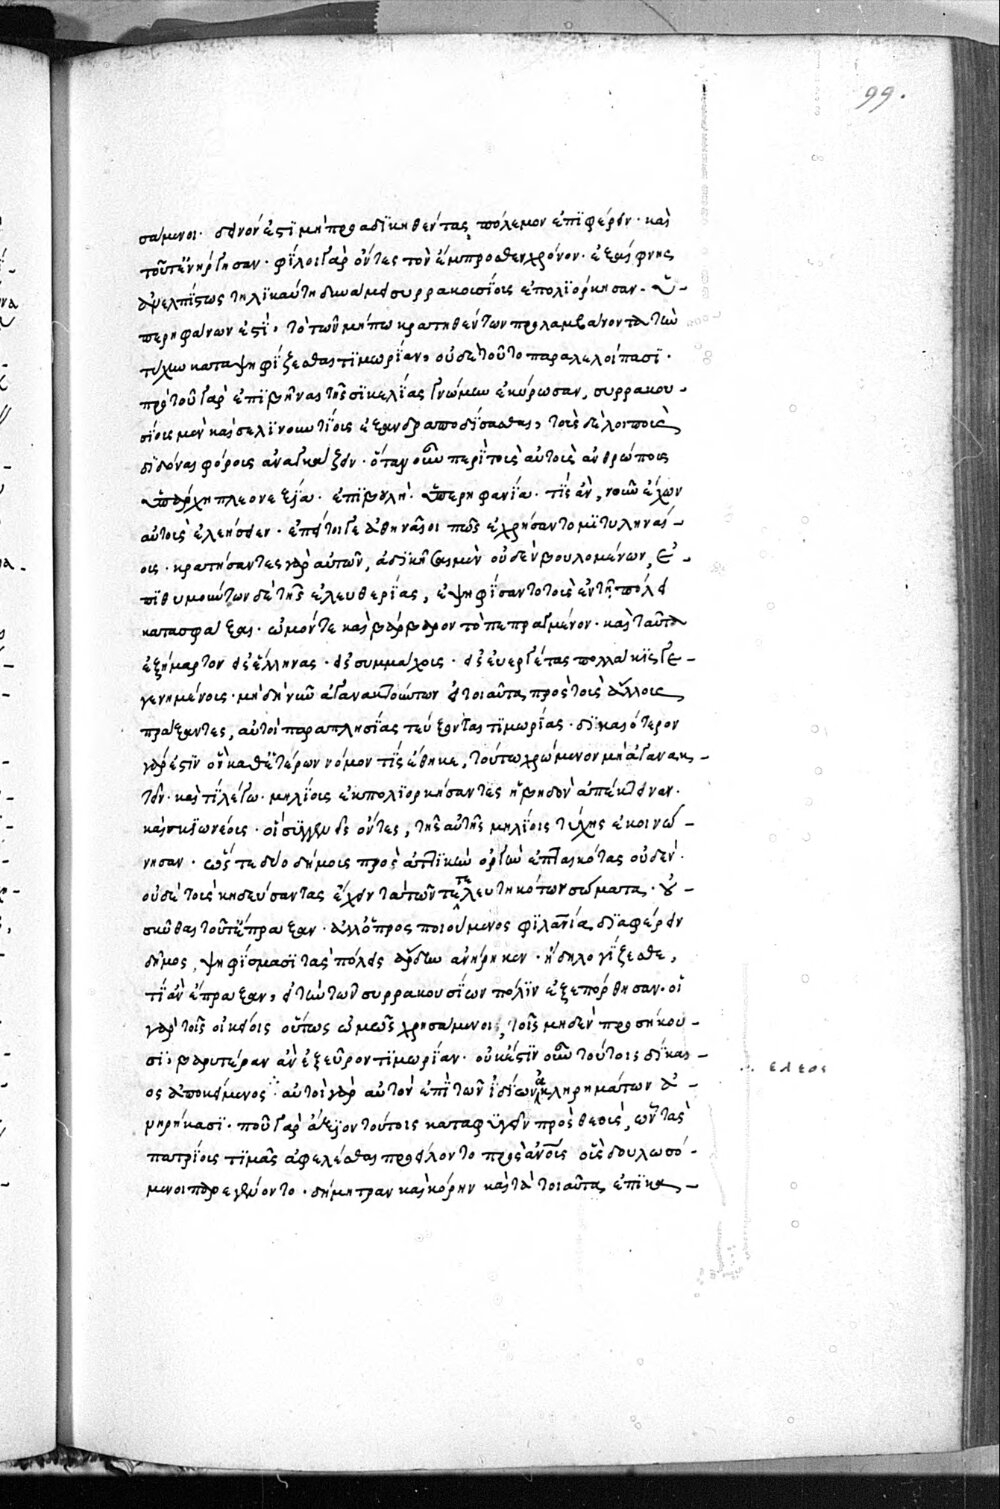 99.
σάμενοι. δεινόν ἐστὶ μὴ προαδικηθέντας, πόλεμον ἐπιφέρειν. καὶ
τοῦτ' ἐνήργησαν. φίλοι γὰρ ὄντες τὸν ἔμπροσθεν χρόνον. ἐξαίφνης
ἀνελπίστως τηλικαύτη δυνάμει συρρακουσίοις ἐπολιόρκησαν. ὑ-
περηφάνων ἐστί, τὸ τῶν μήπω κρατηθέντων προλαμβάνοντα τὴν
τύχην καταψηφίζεσθαι τιμωρίαν, οὐδὲ τοῦτο παραλελοίπασι.
πρὸ τοῦ γὰρ ἐπιβῆναι τῆς σικελίας γνώμην ἐκύρωσαν, συρρακου-
σίοις μὲν καὶ σελινουντίοις ἐξανδραποδίσασθαι, τοῖς δὲ λοιποῖς
διδόναι φόροις ἀναγκάζειν. ὅταν οὖν περὶ τοῖς αὐτοῖς ἀνθρώποις
ὑπάρχη πλεονεξία. ἐπιβουλή. ὑπερηφανία. τίς ἂν, νοῦν ἔχων
αὐτοῖς ἐλεήσειεν. ἐπεί τοί γε ἀθηναῖοι πῶς ἐχρήσαντο μιτυληναί-
οις. κρατήσαντες γὰρ αὐτῶν, ἀδικῆσαι μὲν οὐδὲν βουλομένων, ἐ-
πιθυμούντων δὲ τῆς ἐλευθερίας, ἐψηφίσαντο τοῖς ἐν τῇ πόλει
κατασφάξαι. ὠμόν τε καὶ βάρβαρον τὸ πεπραγμένον. καὶ ταῦτα
ἐξήμαρτον εἰς ἕλληνας. εἰς συμμάχοις. εἰς εὐεργέτας πολλάκις γε-
γενημένοις. μὴ δὴ νῦν ἀγανακτούντων εἰ τοιαῦτα πρὸς τοῖς ἄλλοις
πράξαντες, αὐτοὶ παραπλησίας τεύξονται τιμωρίας. δικαιότερον
γάρ ἐστιν ὃν καθ' ἑτέρων νόμον τίς ἔθηκε, τούτω χρώμενον μὴ ἀγανακ-
τεῖν. καὶ τί λέγω. μηλίοις ἐκπολιορκήσαντες ἡβηδὸν ἀπέκτειναν.
καὶ σκιωνέοις. οἱ συγγενεῖς ὄντες, τῆς αὐτῆς μηλίοις τύχης ἐκοινώ-
νησαν. ὥστε δύο δήμοις πρὸς ἀττικὴν ὀργὴν ἐπταικότας οὐδὲν.
οὐδὲ τοῖς κηδεύσαντας ἔχειν τὰ τῶν τετελευτηκότων σώματα. οὐ
σκύθαι τοῦτ' ἔπραξαν. ἀλλ' ὁ προσποιούμενος φιλανία διαφέρειν
δῆμος, ψηφίσμασι τὰς πόλεις ἄρδην ἀνήρηκεν. ἤδη λογίζεσθε,
τί ἂν ἔπραξαν, εἰ τὴν τῶν συρρακουσίων πόλιν ἐξεπόρθησαν. οἱ
γὰρ τοῖς οἰκείοις οὕτως ὠμῶς χρησάμενοι, τοῖς μηδὲν προσήκου-
σι, βαρυτέραν ἂν ἐξεῦρον τιμωρίαν. οὐκ ἔστιν οὖν τούτοις δίκαι-
ος ἀποκείμενος. αὐτοὶ γὰρ αὐτὸν ἐπὶ τῶν ἰδίων ἀκληρημάτων ἀ-
νηρήκασι. ποῦ γὰρ ἄξιον τούτοις καταφυγεῖν πρὸς θεοῖς, ὧν τὰς
πατρίοις τιμὰς ἀφελέσθαι προείλοντο πρὸς ἀνοις οἷς δουλωσό-
μενοι παρεγένοντο. δήμητραν καὶ κόρην καὶ τὰ τοιαῦτα ἐπικα-
ελεος